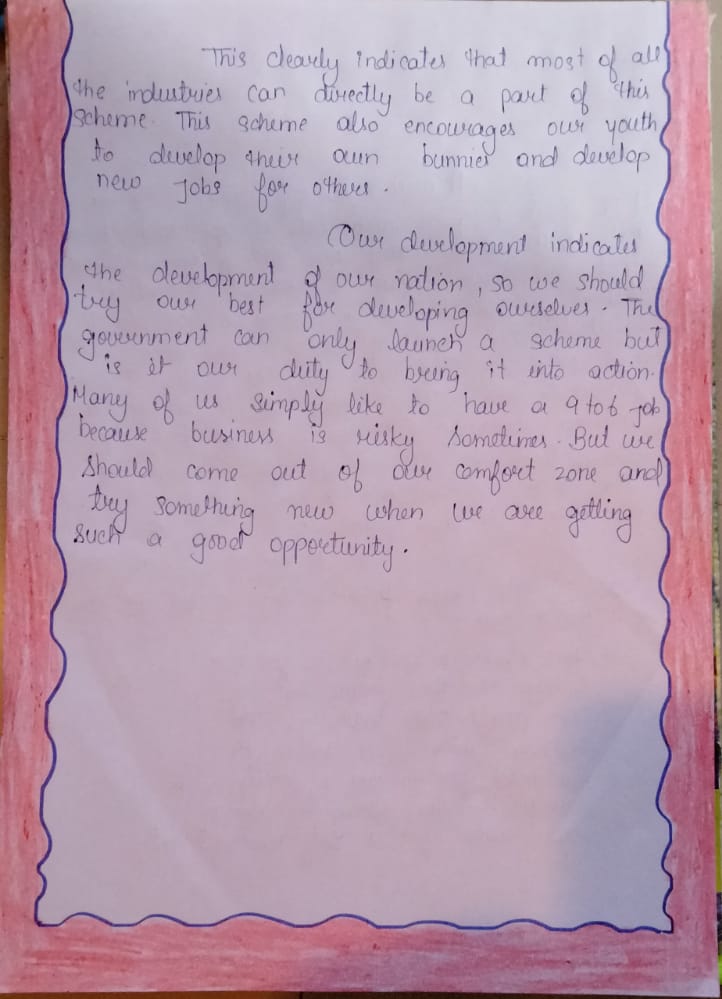 This clearly indicates that most of all
the industries can directly be a part of this
scheme. This scheme also encourages our youth
to develop their own bunnier and develop
new jobs for others.
Our development indicates
the development of our nation, so we should
try our best for developing ourselves. The
government can only launch a scheme but
is it our duty to bring it into action.
Many of us simply like to have a 9 to 6 job
because business is risky sometimes. But we
should come out of our comfort zone and
try something new when we are getting
such a good opportunity.